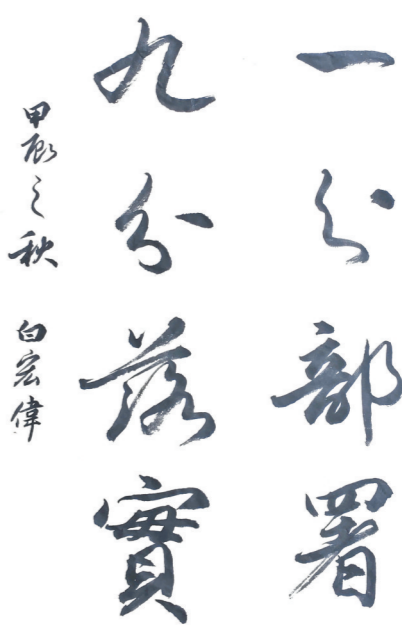 一分部署
九分落實
甲辰之秋 白宏偉